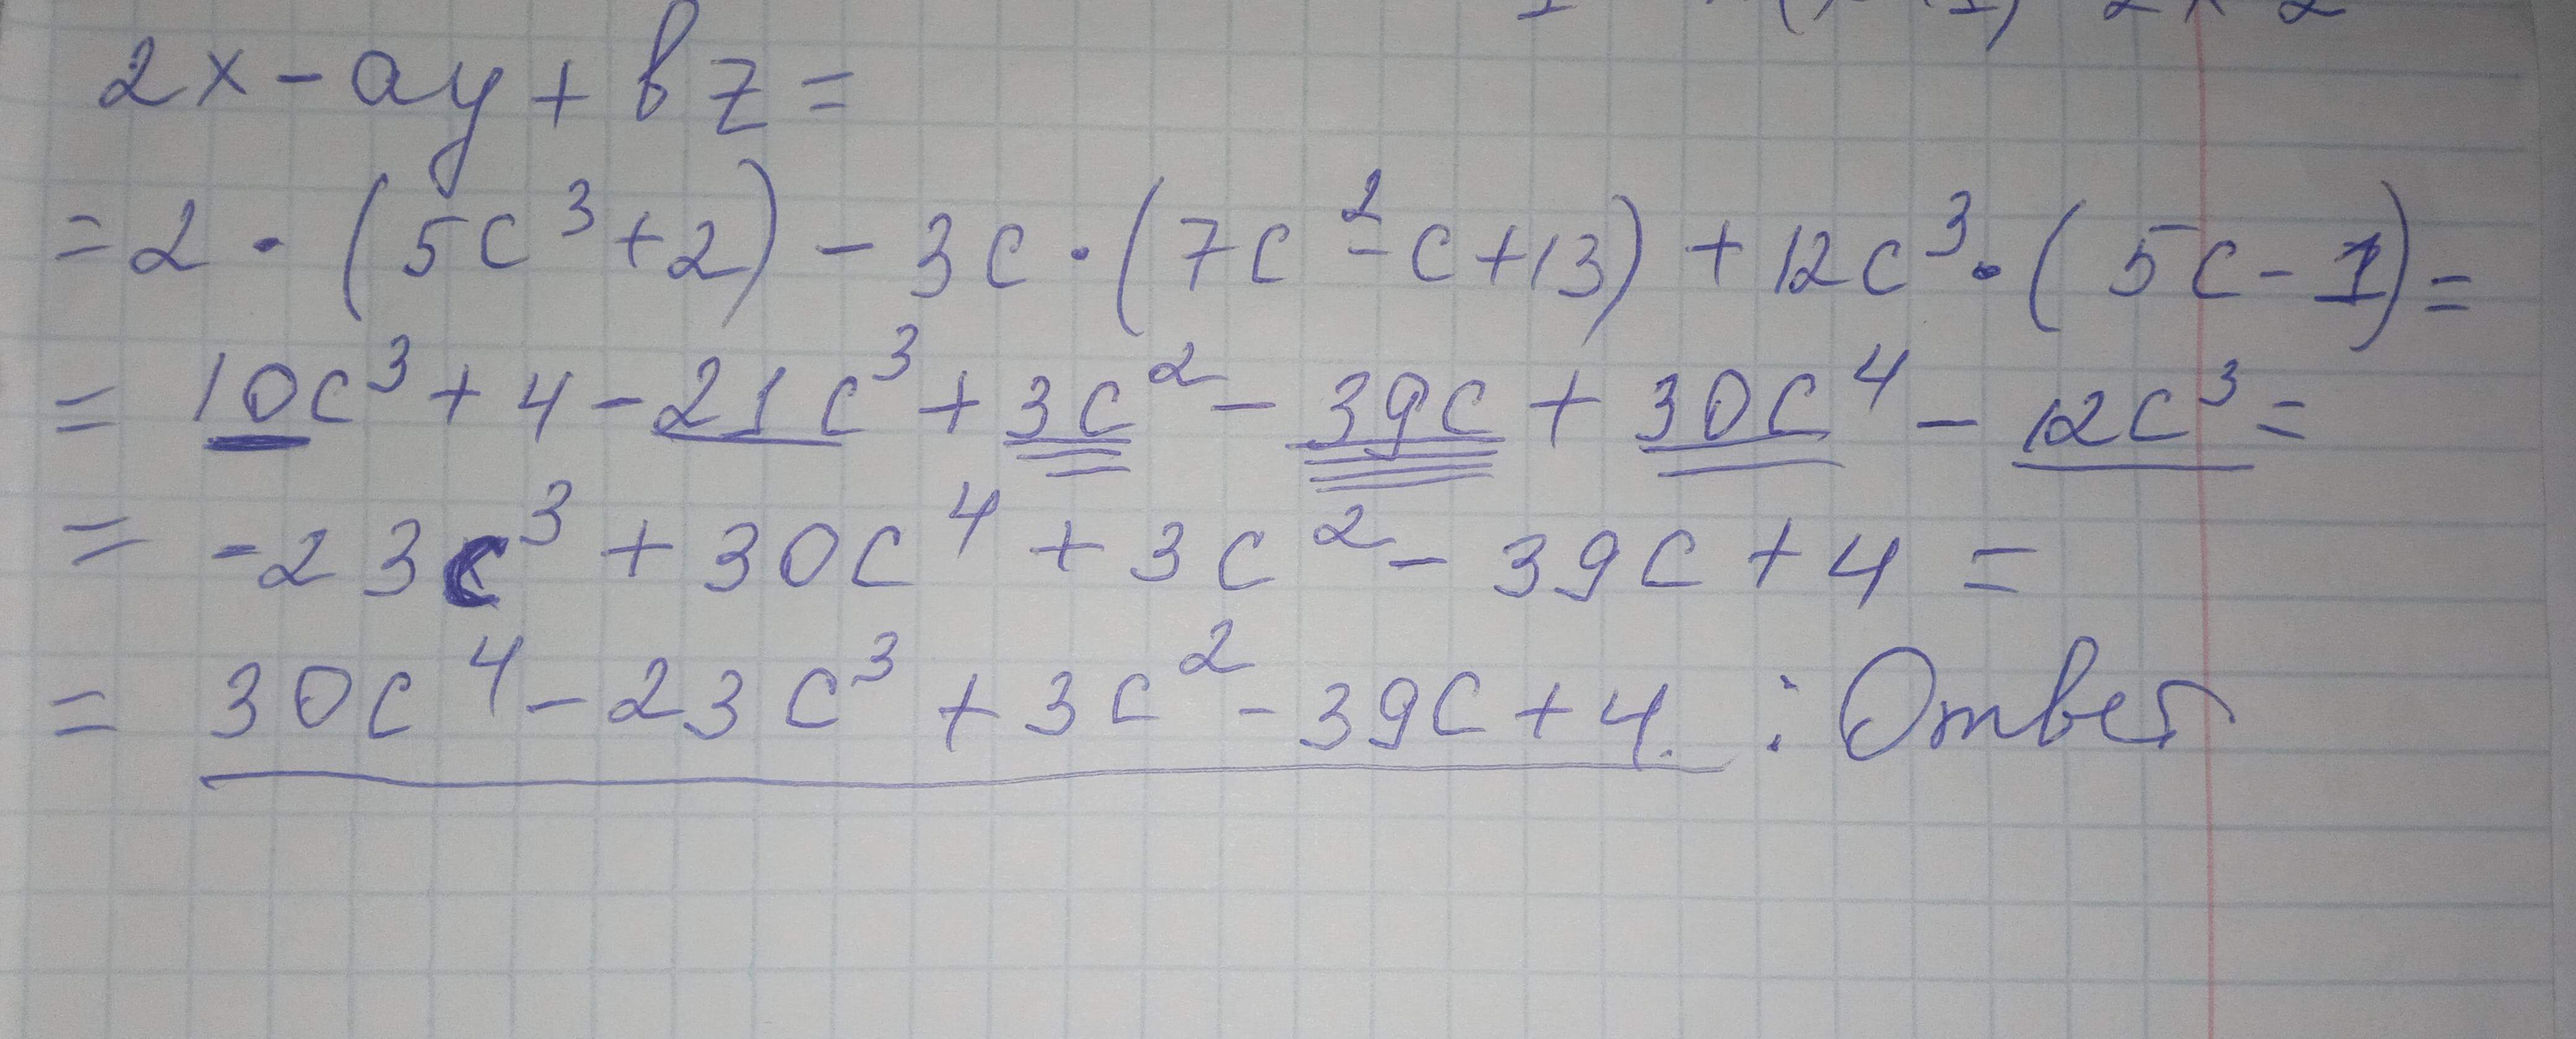 2x - ay + bz =
= 2 · (5c³ + 2) - 3c · (7c² - c + 13) + 12c³ · (5c - 1) =
= 10c³ + 4 - 21c³ + 3c² - 39c + 30c⁴ - 12c³ =
= -23c³ + 30c⁴ + 3c² - 39c + 4 =
= 30c⁴ - 23c³ + 3c² - 39c + 4. : Ответ